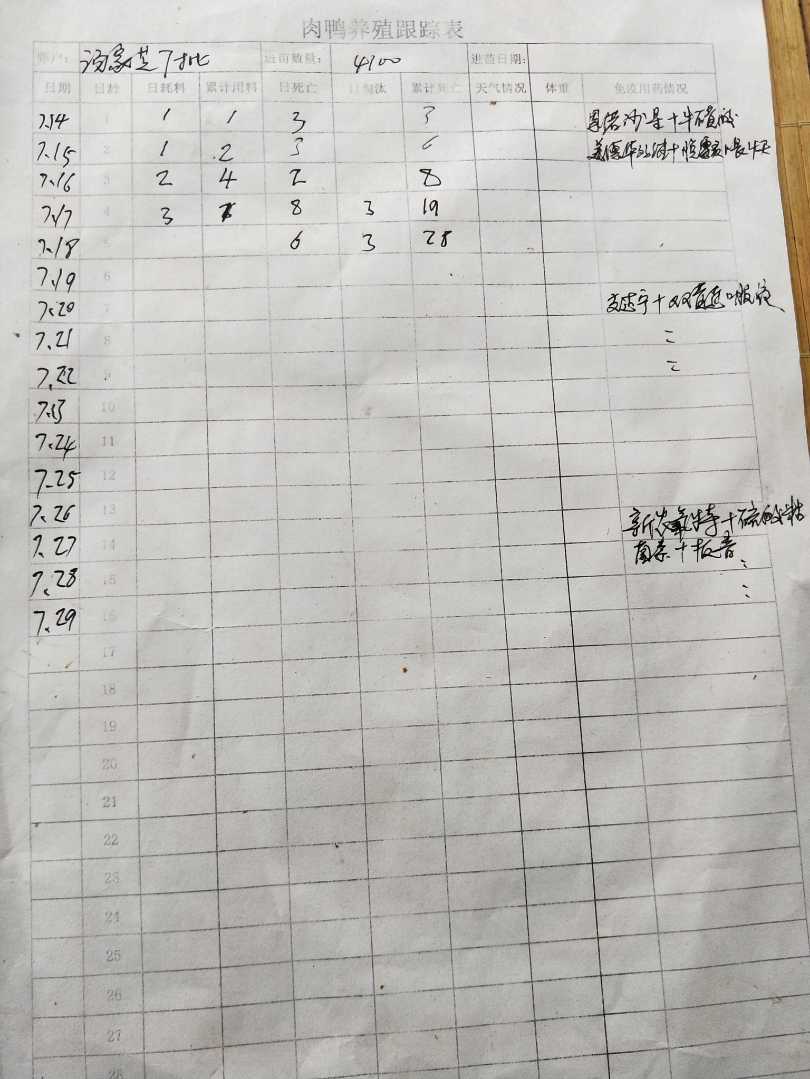 肉鸭养殖跟踪表
账户: 汤家芝7批 进苗数量: 4100 进苗日期:
日期 日龄 日耗料 累计用料 日死亡 日淘汰 累计死亡 天气情况 体重 免疫用药情况
7.14 1 1 1 3 3 恩诺沙星+牛磺酸
7.15 2 1 2 3 6
7.16 3 2 4 2 8
7.17 4 3 7 8 3 19
7.18 5 6 3 28
7.19 6
7.20 7 口服液
7.21 8 ::
7.22 9 ::
7.23 10
7.24 11
7.25 12
7.26 13 新
7.27 14 菌杀+板青
7.28 15 ::
7.29 16 ::
17
18
19
20
21
22
23
24
25
26
27
28